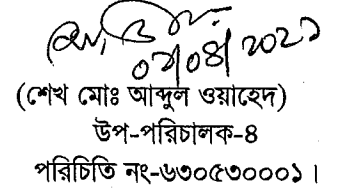 ০৭/০৪/২০২১
(শেখ মোঃ আব্দুল ওয়াহেদ)
উপ-পরিচালক-৪
পরিচিতি নং-৬৩০৫৩০০০১।